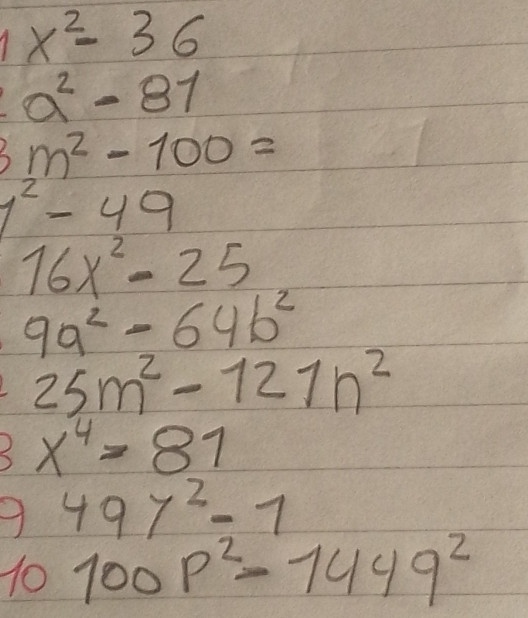 1 x² - 36
2 a² - 81
3 m² - 100 =
y² - 49
16x² - 25
9a² - 64b²
25m² - 121n²
8 x⁴ - 81
9 49y² - 1
10 100p² - 144q²